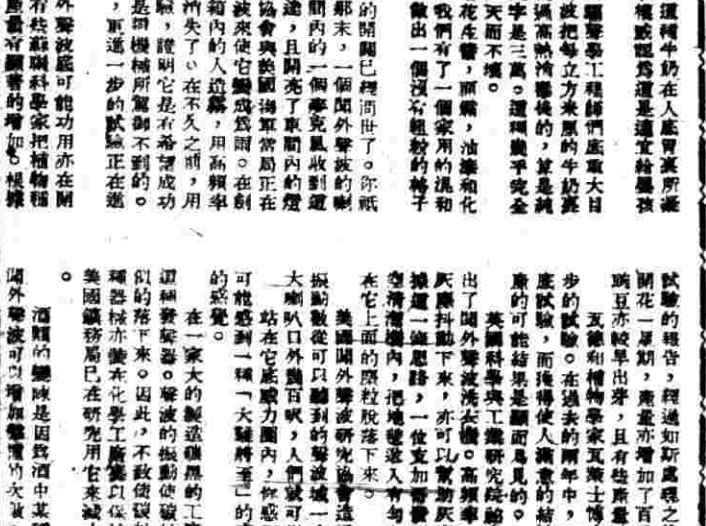 這種牛奶在人底胃裏所凝
認爲這是適宜給嬰孩
聲學工程師們底重大目
波把每立方米厘的牛奶裏
過高熱消毒後的,算是純
字是三萬。這種幾乎完全
天而不壞。
花生醬,面霜,油漆和化
我們有了一個家用的混和
做出一個沒有粗粒的格子
的開關已經問世了。你祇
那末,一個聞外聲波的喇
間內的一個麥克風收到這
達,且開亮了車間內的燈
協會與英國海軍當局正在
波來使它變成爲雨。在創
箱內的人造霧,用高頻率
消失了。在不久之前,用
驗,證明它是有希望成功
是現機械所駕御不到的。
,更進一步的試驗正在進
外聲波底可能功用亦在開
有些蘇聯科學家把植物種
產量有顯著的增加。根據
試驗的報告,經過如斯處理之
開花一星期,產量亦增加了百
豌豆亦較早出芽,且有些產量
瓦德和植物學家瓦萊士博
步的試驗。在過去的兩年中,
底試驗,而獲得使人滿意的結
產的可能結果是顯而易見的。
英國科學與工業研究
出了聞外聲波洗衣機。高頻率
灰塵抖動下來,亦可以幫助
據這一條思路,一位支加哥
空清潔機內,把地毯送入有
在它上面的塵粒脫落下來。
美國聞外聲波研究協會造
振動數從可以聽到的聲波域一
大喇叭口外幾百呎,人們就可
站在它底威力圈內,你感
可能感到一種「大難將至」的
的感覺。
在一家大的製造碳黑的工
這種發聲器。聲波的振動使碳
似的落下來。因此,不致使碳
種器械亦裝在化學工廠裏以保
美國礦務局已在研究用它來減
。
酒類的變陳是因爲酒中某
聞外聲波可以增加擊撞的次數